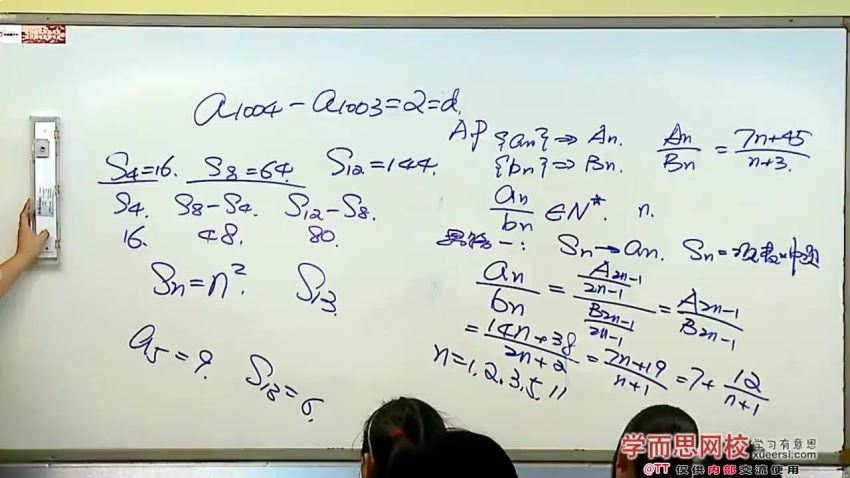 a₁₀₀₄ - a₁₀₀₃ = 2 = d.
S₄=16. S₈=64. S₁₂=144.
S₄. S₈-S₄. S₁₂-S₈.
16. 48. 80.
Sₙ=n². S₁₃
a₅=9. S₁₃=
AP {aₙ} ⇒ Aₙ. Aₙ/Bₙ = (7n+45)/(n+3).
{bₙ} ⇒ Bₙ.
aₙ/bₙ ∈N*. n.
一: Sₙ→aₙ. Sₙ=项数×中项
aₙ/bₙ = (A₂ₙ₋₁/(2n-1))/(B₂ₙ₋₁/(2n-1)) = A₂ₙ₋₁/B₂ₙ₋₁
= (14n+38)/(2n+2) = (7n+19)/(n+1) = 7+ 12/(n+1)
n=1,2,3,5,11
学而思网校 学习有意思
xueersi.com
@TT 仅供内部交流使用